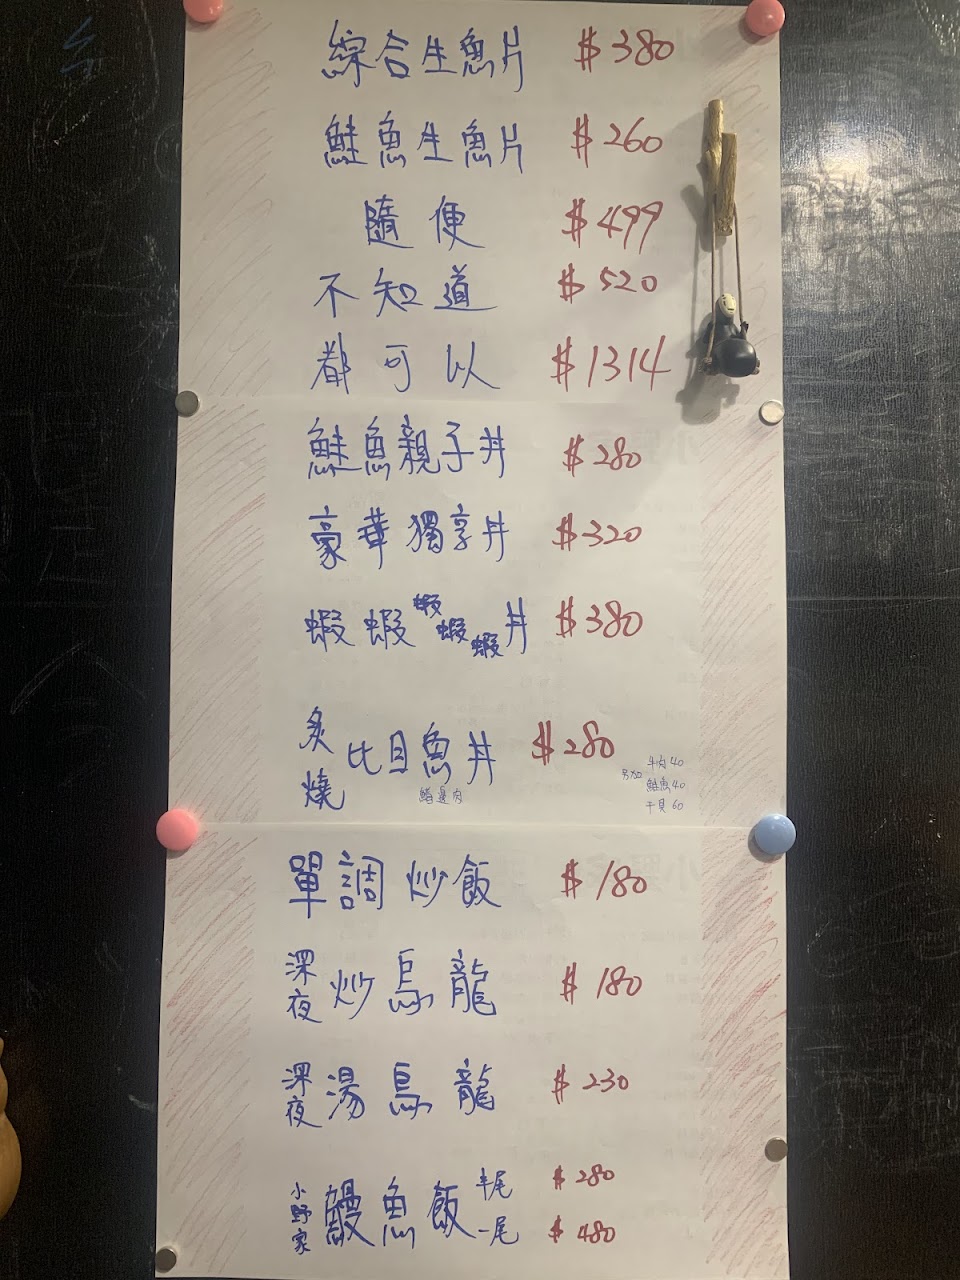 綜合生魚片 $380
鮭魚生魚片 $260
隨便 $499
不知道 $520
都可以 $1314
鮭魚親子丼 $280
豪華獨享丼 $320
蝦蝦蝦蝦蝦丼 $380
炙燒比目魚丼 $280
鰭邊肉
另加
牛肉40
鮭魚40
干貝60
單調炒飯 $180
深夜炒烏龍 $180
深夜湯烏龍 $230
小野家鰻魚飯 半尾 $280
一尾 $480